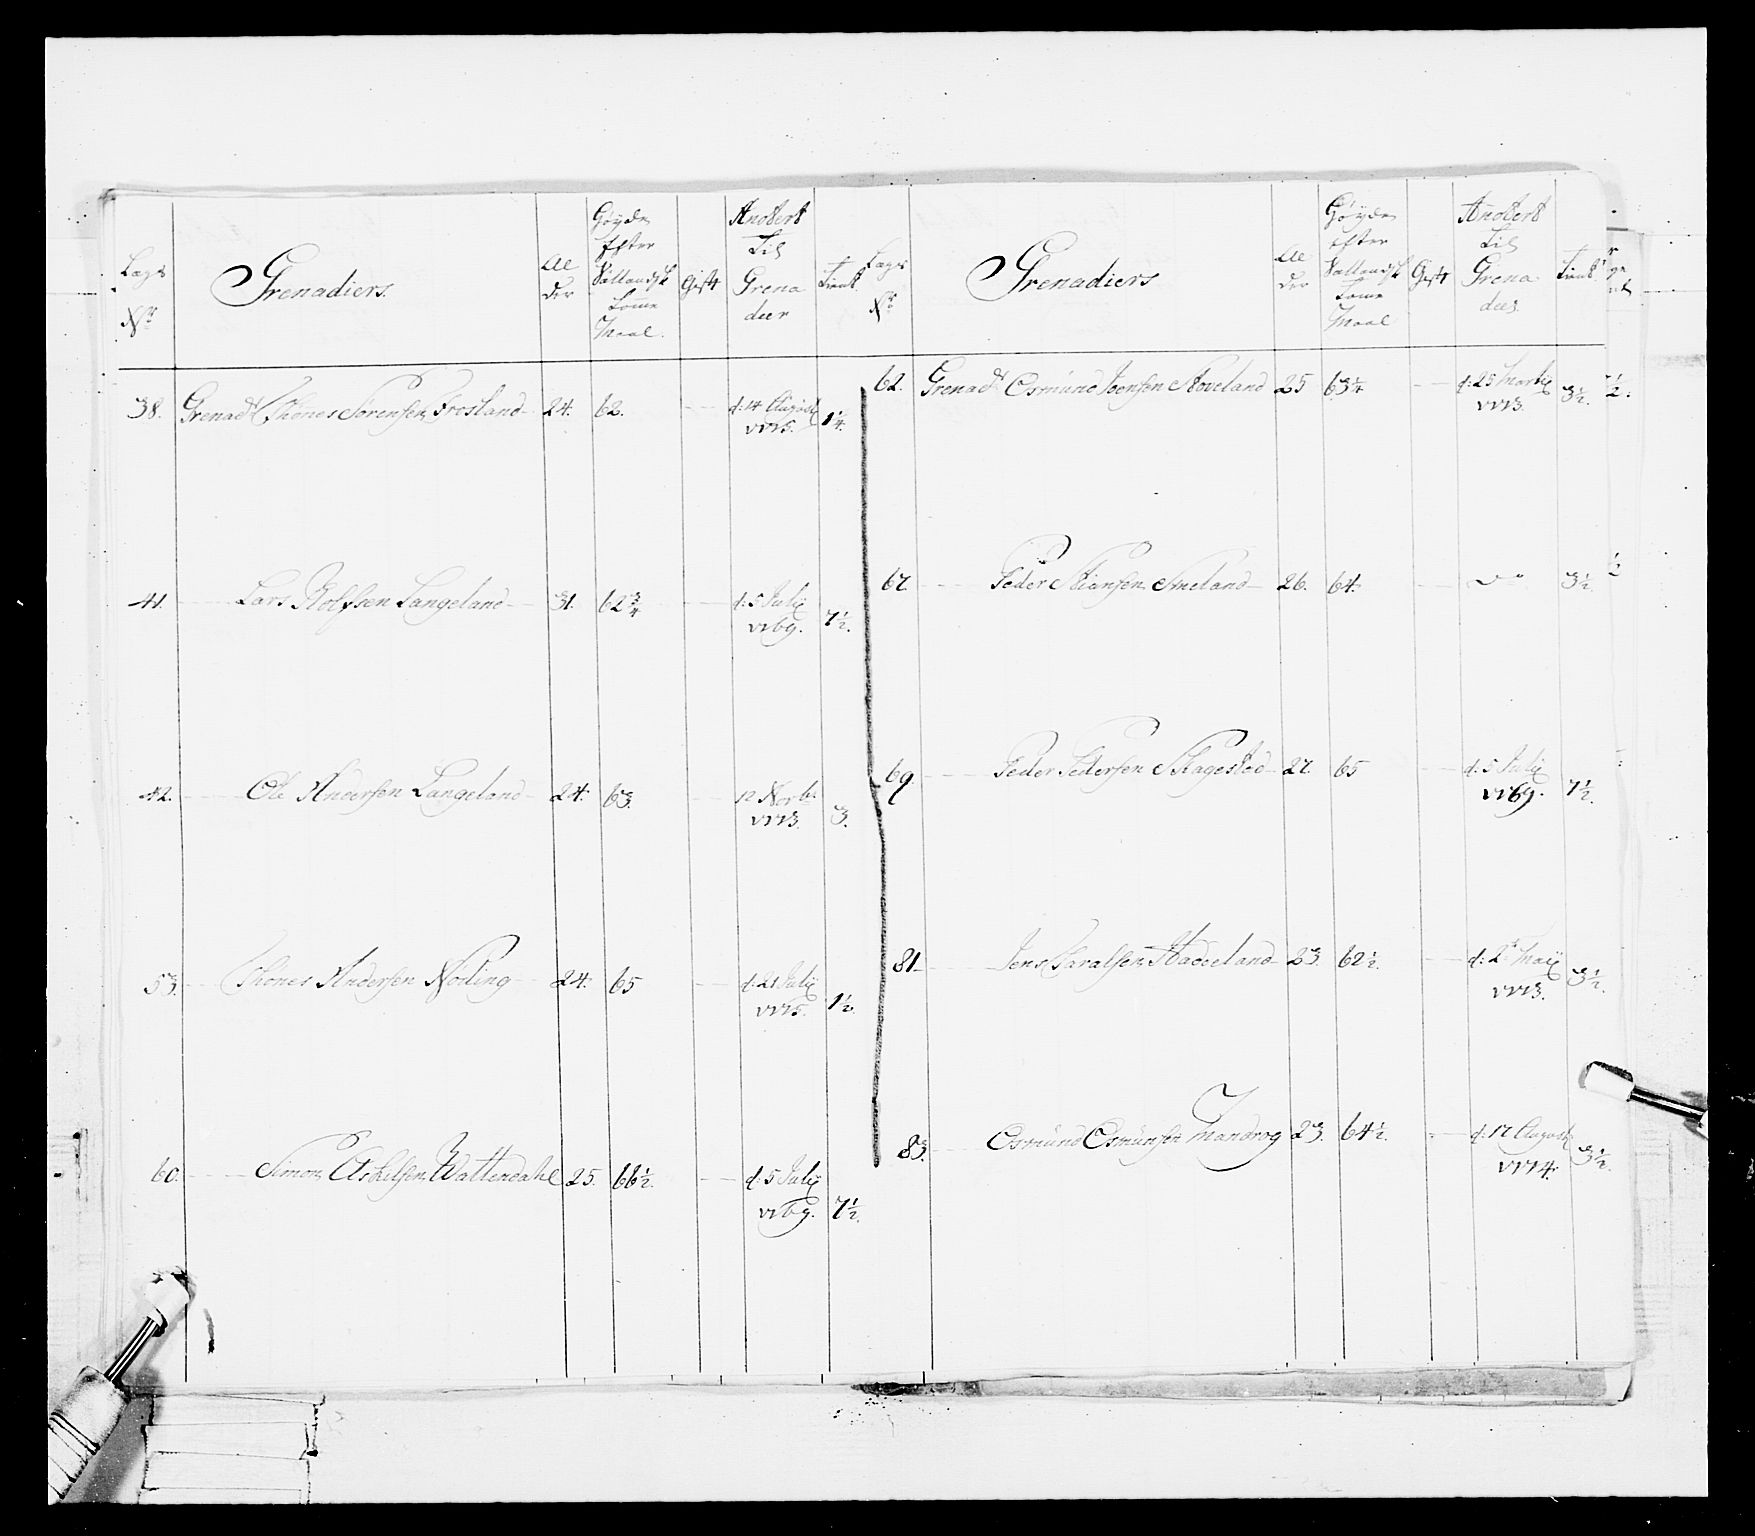 Lags Nr
Grenadiers.
Al der
Høyde efter Sællandsk Tomme Maal.
Gift
Andert til Grena deer
Tient
38. Grenadr Thones Sørensen Frosland 24. 62. d: 14 Augusti 1775. 1 1/4.
41. Lars Rolfsen Langeland 31. 62 3/4 d: 5 Julij 1769. 7 1/2.
42. Ole Andersen Langeland 24. 63. 12 Novbr 1773. 3.
53. Thones Andersen Nodling 24. 65 d: 21 Julij 1775. 1 1/2.
60. Simon Eskelsen Wattendahl 25. 66 1/2. d: 5 Julij 1769. 7 1/2.
Lags Nr
Grenadiers
Al der
Høyde efter Sallandsk Tome Maal
Gift
Andert til Grena deer.
Tient
62. Grenadr Osmund Joensen Stoveland 25 63 1/4 d: 25 Martij 1773. 3 1/2.
67. Peder Stiansen Smeland 26. 64. do 3 1/2.
69. Peder Pedersen Skagestad 27. 65 d: 5 Julij 1769. 7 1/2.
81. Jens Taralsen Hadeland 23 62 1/2. d: 2 Maij 1773. 3 1/2.
83. Osmund Osmunsen Mandrog 23. 64 1/2. d: 17 Augusti 1774. 3 1/2.